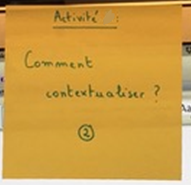 Activité :
Comment
contextualiser ?
2
Aa